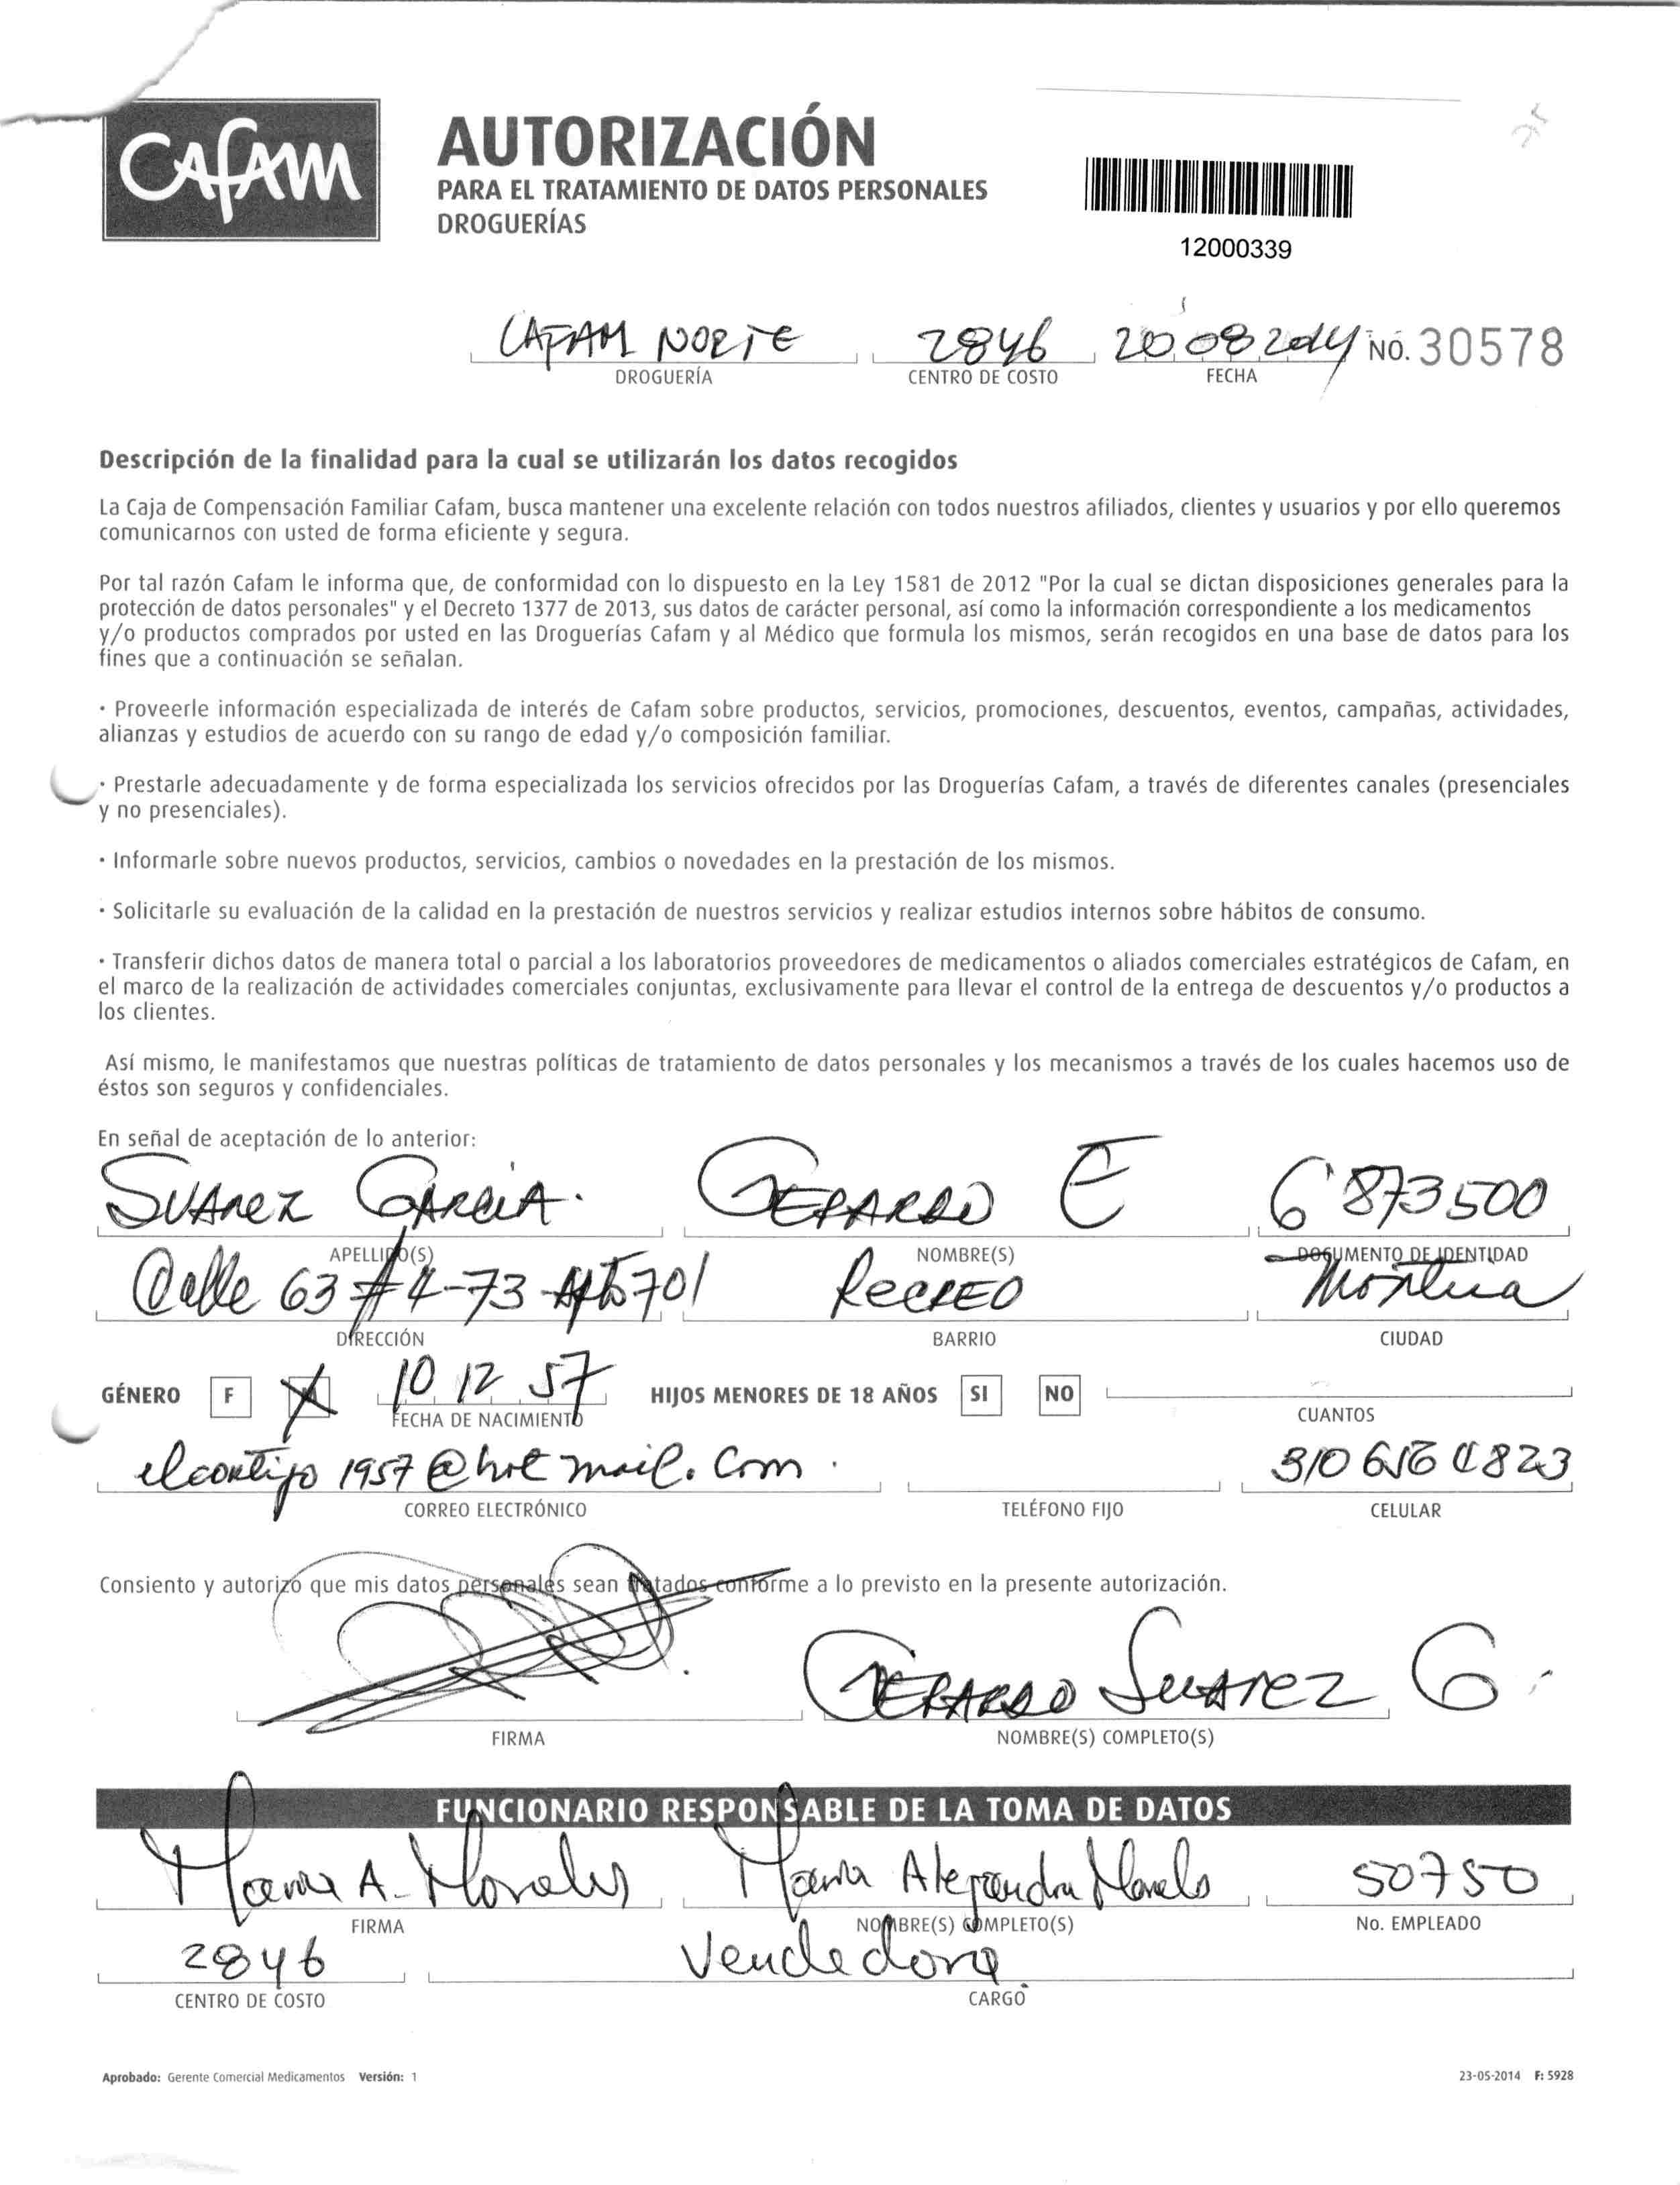 Cafam
AUTORIZACIÓN
PARA EL TRATAMIENTO DE DATOS PERSONALES
DROGUERÍAS
12000339
CAFAM NORTE 2846 20 08 2014 NO. 30578
DROGUERÍA CENTRO DE COSTO FECHA
Descripción de la finalidad para la cual se utilizarán los datos recogidos
La Caja de Compensación Familiar Cafam, busca mantener una excelente relación con todos nuestros afiliados, clientes y usuarios y por ello queremos
comunicarnos con usted de forma eficiente y segura.
Por tal razón Cafam le informa que, de conformidad con lo dispuesto en la Ley 1581 de 2012 "Por la cual se dictan disposiciones generales para la
protección de datos personales" y el Decreto 1377 de 2013, sus datos de carácter personal, así como la información correspondiente a los medicamentos
y/o productos comprados por usted en las Droguerías Cafam y al Médico que formula los mismos, serán recogidos en una base de datos para los
fines que a continuación se señalan.
· Proveerle información especializada de interés de Cafam sobre productos, servicios, promociones, descuentos, eventos, campañas, actividades,
alianzas y estudios de acuerdo con su rango de edad y/o composición familiar.
· Prestarle adecuadamente y de forma especializada los servicios ofrecidos por las Droguerías Cafam, a través de diferentes canales (presenciales
y no presenciales).
· Informarle sobre nuevos productos, servicios, cambios o novedades en la prestación de los mismos.
· Solicitarle su evaluación de la calidad en la prestación de nuestros servicios y realizar estudios internos sobre hábitos de consumo.
· Transferir dichos datos de manera total o parcial a los laboratorios proveedores de medicamentos o aliados comerciales estratégicos de Cafam, en
el marco de la realización de actividades comerciales conjuntas, exclusivamente para llevar el control de la entrega de descuentos y/o productos a
los clientes.
Así mismo, le manifestamos que nuestras políticas de tratamiento de datos personales y los mecanismos a través de los cuales hacemos uso de
éstos son seguros y confidenciales.
En señal de aceptación de lo anterior:
SUAREZ GARCIA. GERARDO E 6'873500
APELLIDO(S) NOMBRE(S) DOCUMENTO DE IDENTIDAD
Calle 63 # 4-73 Apto 701 RECREO
DIRECCIÓN BARRIO CIUDAD
GÉNERO F X 10 12 57 HIJOS MENORES DE 18 AÑOS SI NO
FECHA DE NACIMIENTO CUANTOS
1957@hotmail.com
CORREO ELECTRÓNICO TELÉFONO FIJO CELULAR
Consiento y autorizo que mis datos personales sean tratados conforme a lo previsto en la presente autorización.
GERARDO SUAREZ G.
FIRMA NOMBRE(S) COMPLETO(S)
FUNCIONARIO RESPONSABLE DE LA TOMA DE DATOS
Maria A. Morales Maria Alejandra Morales 50750
FIRMA NOMBRE(S) COMPLETO(S) No. EMPLEADO
2846 Vendedora
CENTRO DE COSTO CARGO
Aprobado: Gerente Comercial Medicamentos Versión: 1 23-05-2014 F: 5928